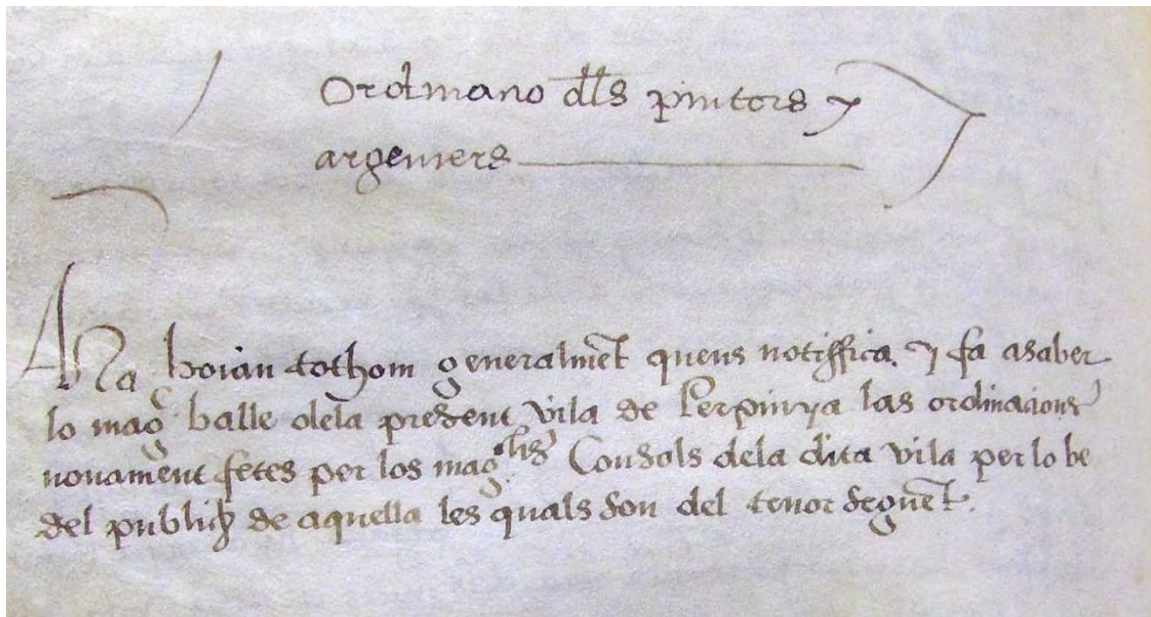 Ordinano dls pintors y
argenters
Ara hoian tothom generalmēt quens notiffica y fa asaber
lo mag balle dela present vila de Perpinya las ordinacions
novament fetes per los mag Consols dela dita vila per lo be
del publich de aquella les quals son del tenor seguēt.